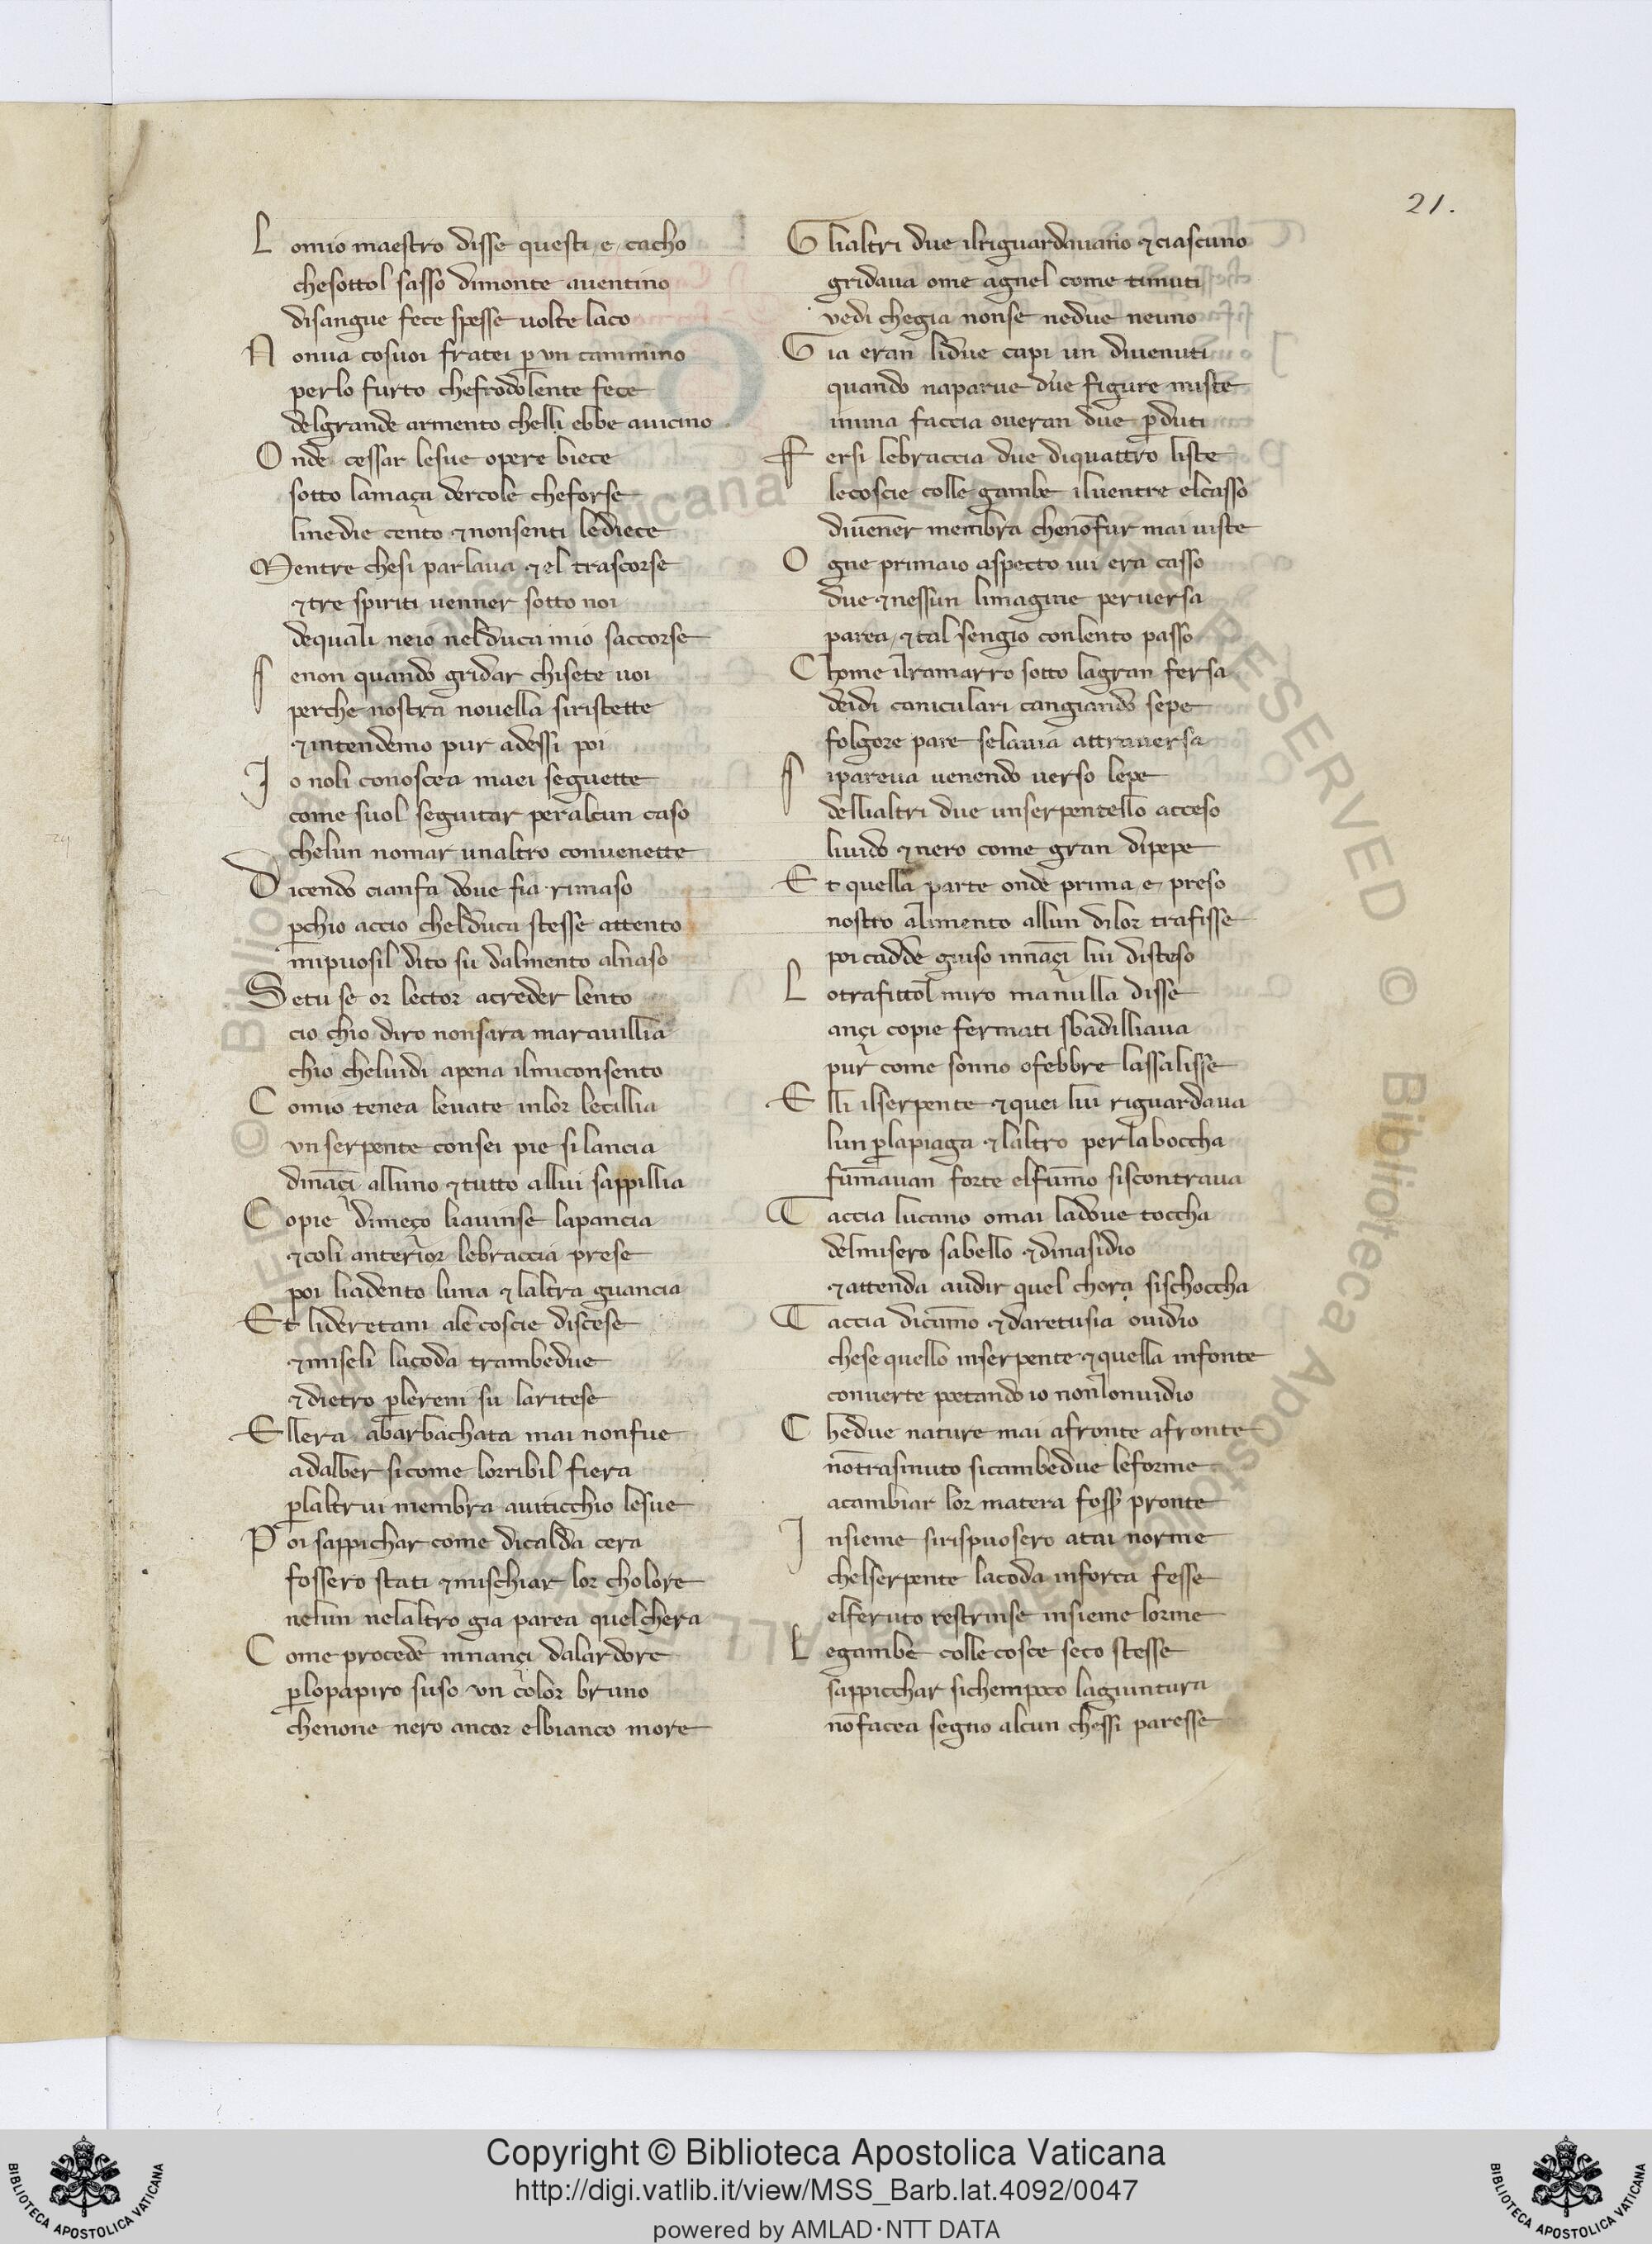 21.
L omio maestro disse questi e cacho
chesottol sasso dimonte auentino
disangue fece spesse uolte laco
N onua cosuoi fratei p̱ vn cammino
perlo furto chefrodolente fece
delgrande armento chelli ebbe auicino
O nde cessar lesue opere biece
sotto lamaça dercole cheforse
linedie cento ⁊ nonsenti lediece
Mentre chesi parlaua ⁊ el trascorse
⁊ tre spiriti uenner sotto noi
dequali neio nelduca mio saccorse
S enon quando gridar chisete uoi
perche nostra nouella siristette
⁊ intendemo pur adessi poi
I o noli conoscea maei seguette
come suol seguitar peralcun caso
chelun nomar unaltro conuenette
Dicendo cianfa doue fia rimaso
p̱chio accio chelduca stesse attento
mipuosil dito su dalmento alnaso
Setu se or lector acreder lento
cio chio diro nonsara marauillia
chio cheluidi apena ilmiconsento
C omio tenea leuate inlor lecillia
vn serpente consei pie si lancia
dināçi alluno ⁊ tutto allui sappillia
C opie dimeço liauinse lapancia
⁊ coli anterior lebraccia prese
poi liadento luna ⁊ laltra guancia
Et lideretani ale coscie discese
⁊ miseli lacoda trambedue
⁊ dietro p̱lereni su laritese
Ellera abarbachata mai nonfue
adalber sicome lorribil fiera
p̱laltrui membra auiticchio lesue
P oi sappichar come dicalda cera
fossero stati ⁊ mischiar lor cholore
nelun nelaltro gia parea quelchera
C ome procede innançi dalardore
p̱lopapiro suso vn color bruno
chenone nero ancor elbianco more
G lialtri due ilriguardauano ⁊ ciascuno
gridaua ome agnel come timuti
vedi chegia nonse nedue neuno
G ia eran lidue capi un diuenuti
quando naparue due figure miste
inuna faccia oueran due p̱duti
F ersi lebraccia due diquattro liste
lecoscie colle gambe iluentre elcasso
diuener membra chenōfur mai uiste
O gne primaio aspecto iui era casso
due ⁊ nessun limagine peruersa
parea ⁊ tal sengio conlento passo
Chome ilramarro sotto lagran fersa
deidi caniculari cangiando sepe
folgore pare selauia attrauersa
S ipareua uenendo uerso lepe
dellialtri due unserpentello acceso
liuido ⁊ nero come gran dipepe
E t quella parte onde prima e preso
nostro alimento allun dilor trafisse
poi cadde giuso innāçi lui disteso
L otrafittol miro manulla disse
ançi copie fermati sbadilliaua
pur come sonno ofebbre lassalisse
E lli ilserpente ⁊ quei lui riguardaua
lun p̱lapiaga ⁊ laltro perlaboccha
fūmauan forte elfūmo siscontraua
T accia lucano omai ladoue toccha
delmisero sabello ⁊ dinasidio
⁊ attenda audir quel chora sischoccha
T accia dicādmo ⁊ daretusia ouidio
chese quello inserpente ⁊ quella infonte
conuerte poetando io nonlonuidio
C hedue nature mai afronte afronte
nōtrasmuto sicambedue leforme
acambiar lor matera foss̱ pronte
I nsieme sirispuosero atai norme
chelserpente lacoda inforca fesse
elferuto restrinse insieme lorme
L egambe colle cosce seco stesse
sappicchar sichempoco lagiuntura
nōfacea segno alcun chessi paresse
Copyright © Biblioteca Apostolica Vaticana
http://digi.vatlib.it/view/MSS_Barb.lat.4092/0047
powered by AMLAD·NTT DATA